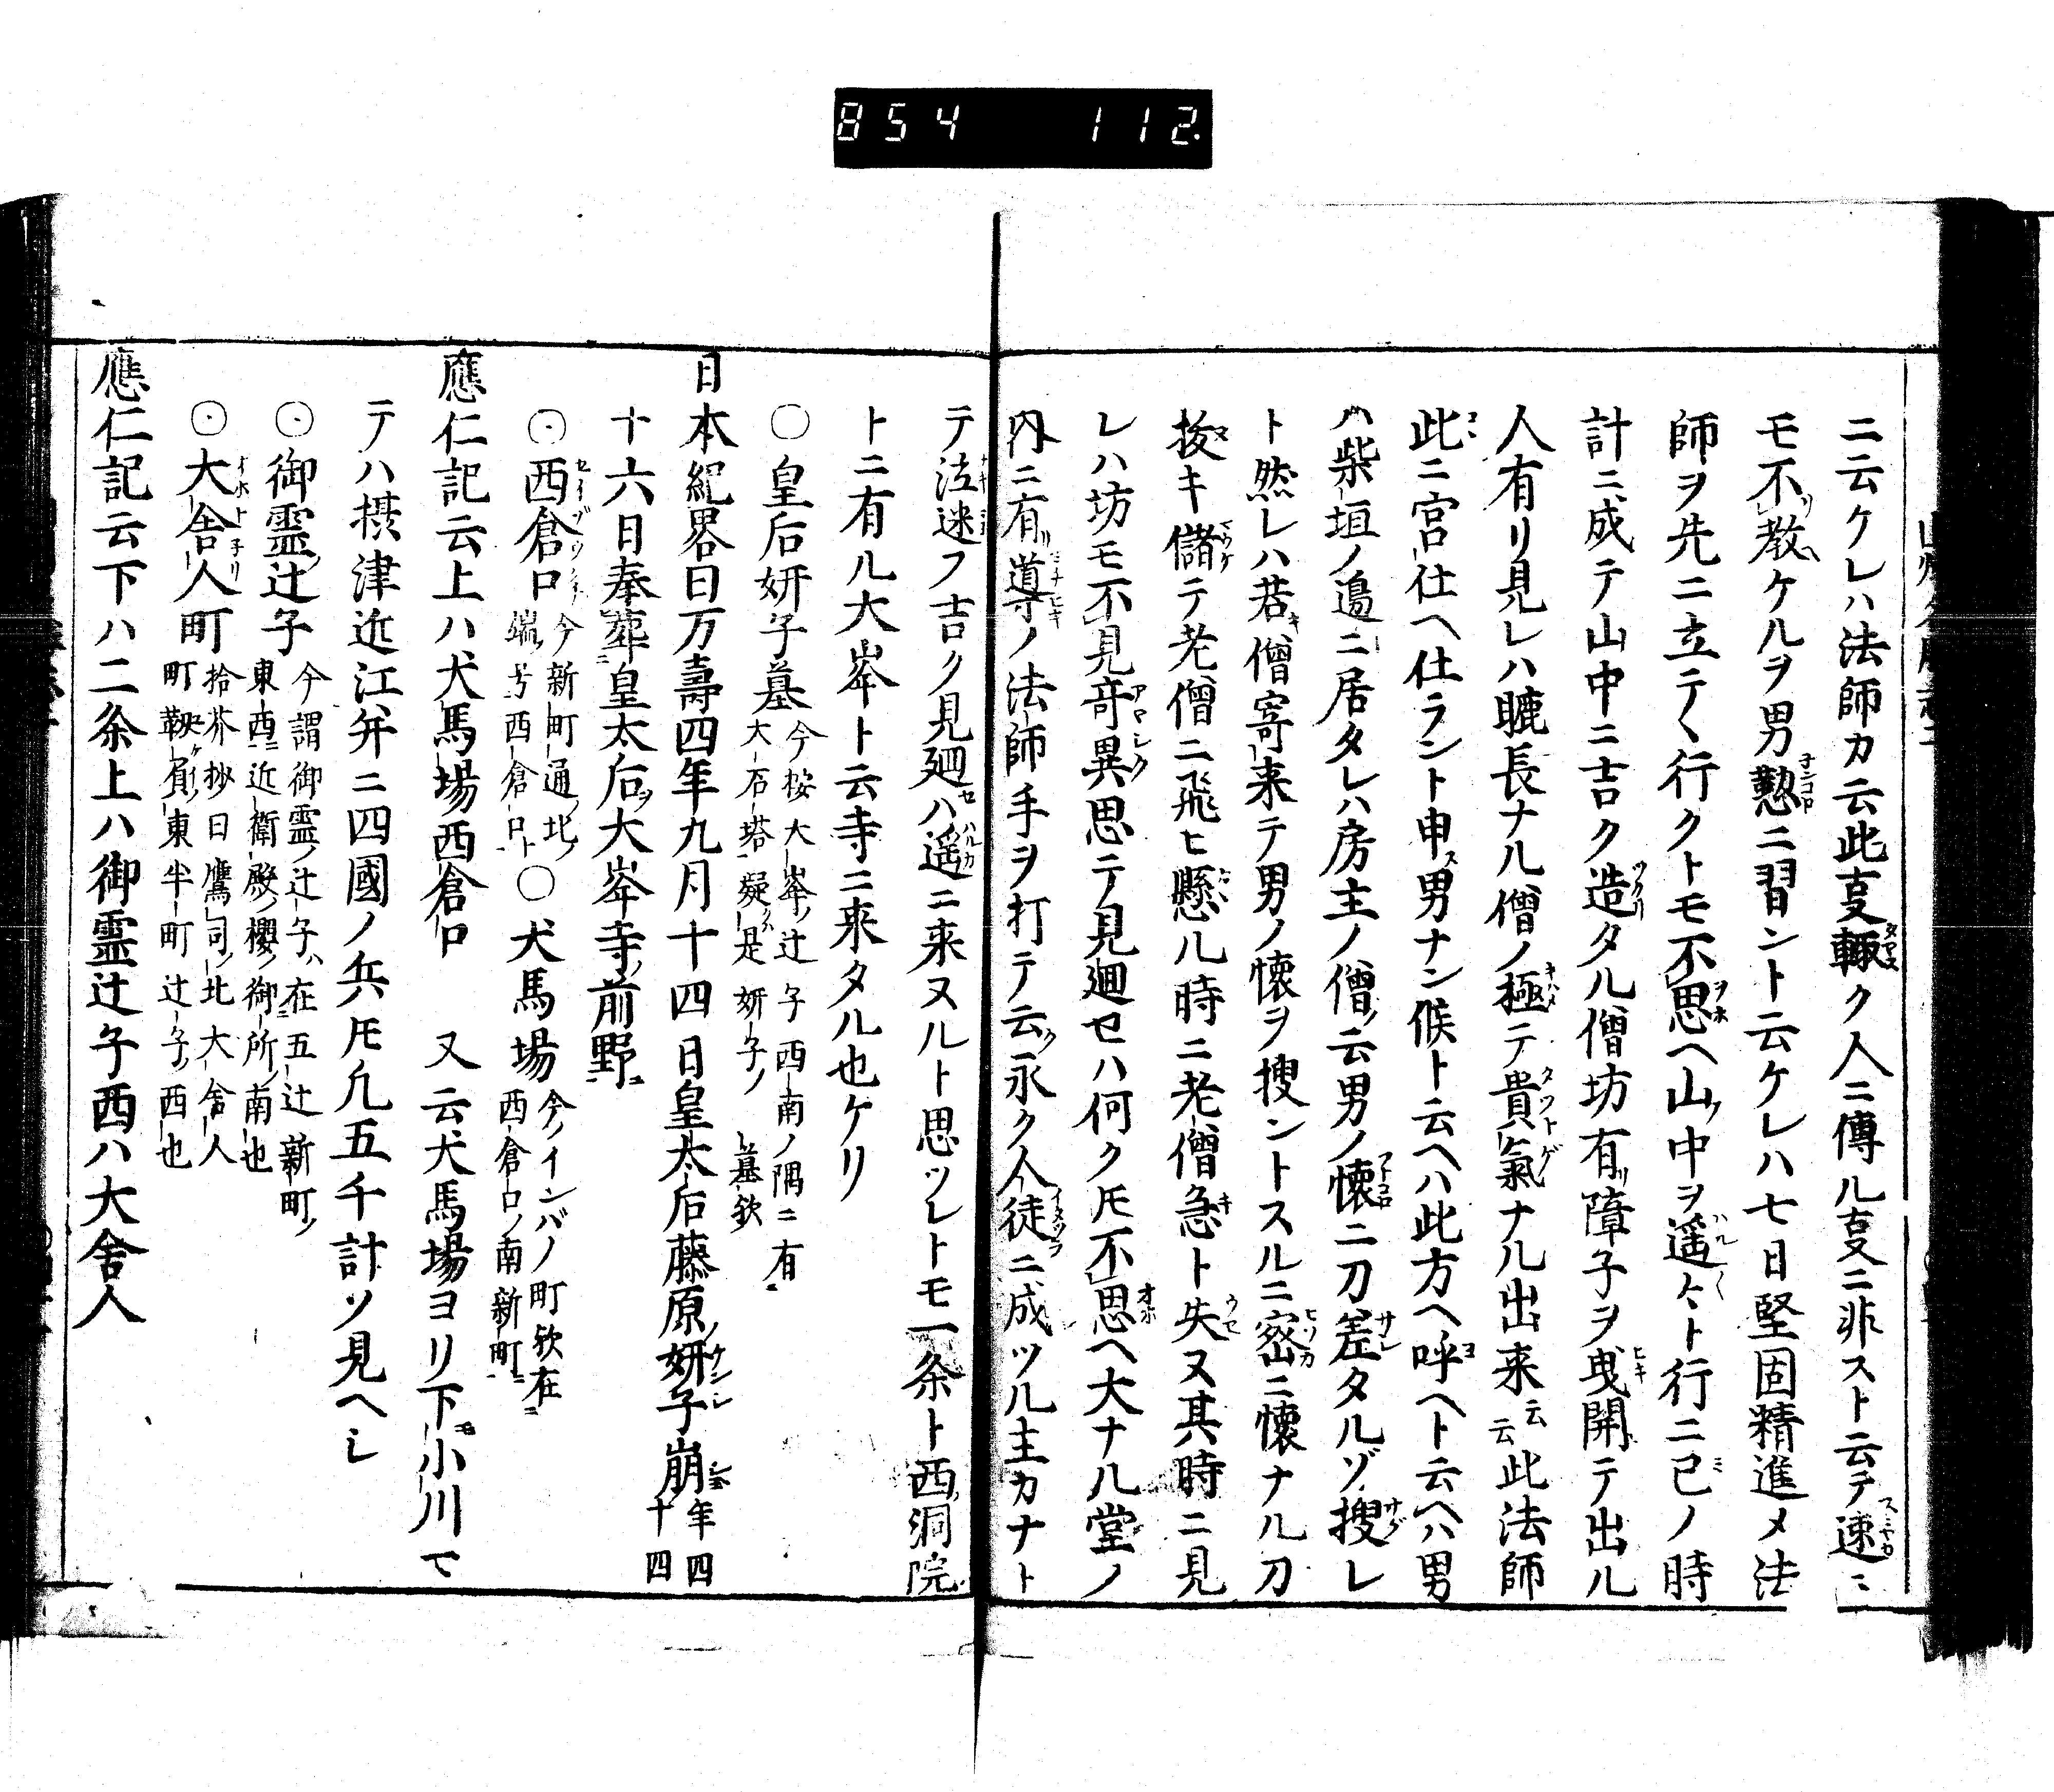 854 112.
ニ云ケレハ法師カ云此叓輙ク人ニ傳ル叓ニ非ストテ速ニ
モ不教ケルヲ男懃ニ習ントケレハ七日堅固精進メ法
師ヲ先ニ立テ〱行クトモ不思ヘ山ノ中ヲ遥々ト行ニ己ノ時
計ニ成テ山中ニ吉ク造タル僧坊有リ障子ヲ曵開テ出ル
人有リ見レハ𥇥長ナル僧ノ極テ貴氣ナル出来云云此法師
此ニ宮仕ヘ仕ラント申ス男ナン候ト云ヘハ此方ヘ呼ヘト云ヘハ男
ハ柴垣ノ邉ニ居タレハ房主ノ僧ノ云男ノ懐ニ刀差タルゾ搜レ
ト然レハ若キ僧寄来テ男ノ懐ヲ搜ントスルニ密ニ懐ナル刀
抜キ儲テ老僧ニ飛ヒ懸ル時ニ老僧急ト失ヌ其時ニ見
レハ坊モ不見竒異思テ見廻セハ何クトモ不思ヘ大ナル堂ノ
内ニ有リ導ノ法師手ヲ打テ云ク永ク人徒ニ成ツル主カナト
テ泣迷フ吉ク見廻セハ遥ニ来ヌルト思ツレトモ一条ト西ノ洞院
トニ有ル大峯ト云寺ニ来タル也ケリ
〇皇后姸子墓 今按大峯ノ辻子西南ノ隅ニ有
大石塔疑ハ是姸子ノ墓欤
日本紀畧曰万壽四年九月十四日皇太后藤原ノ姸子崩年四
十四
十六日奉葬皇太后ヲ大峯寺ノ前野ニ
⊙西倉口 今新町通ノ北ノ
端号西倉口ト
〇犬馬場 今ノインバノ町欤在
西倉口ノ南新町ニ
應仁記云上ハ犬馬場西倉口 又云犬馬場ヨリ下小川マデ
テハ摂津近江并ニ四國ノ兵凢五千計ソ見ヘシ
⊙御霊辻子 今謂御霊ノ辻子ハ在五辻新町ノ
東西ニ近衛殿ノ櫻ノ御所ノ南也
⊙大舎人町 拾芥抄曰鷹司ノ北大舎人
町靱負ノ東半町辻子ノ西也
應仁記云下ハ二条上ハ御霊辻子西ハ大舎人